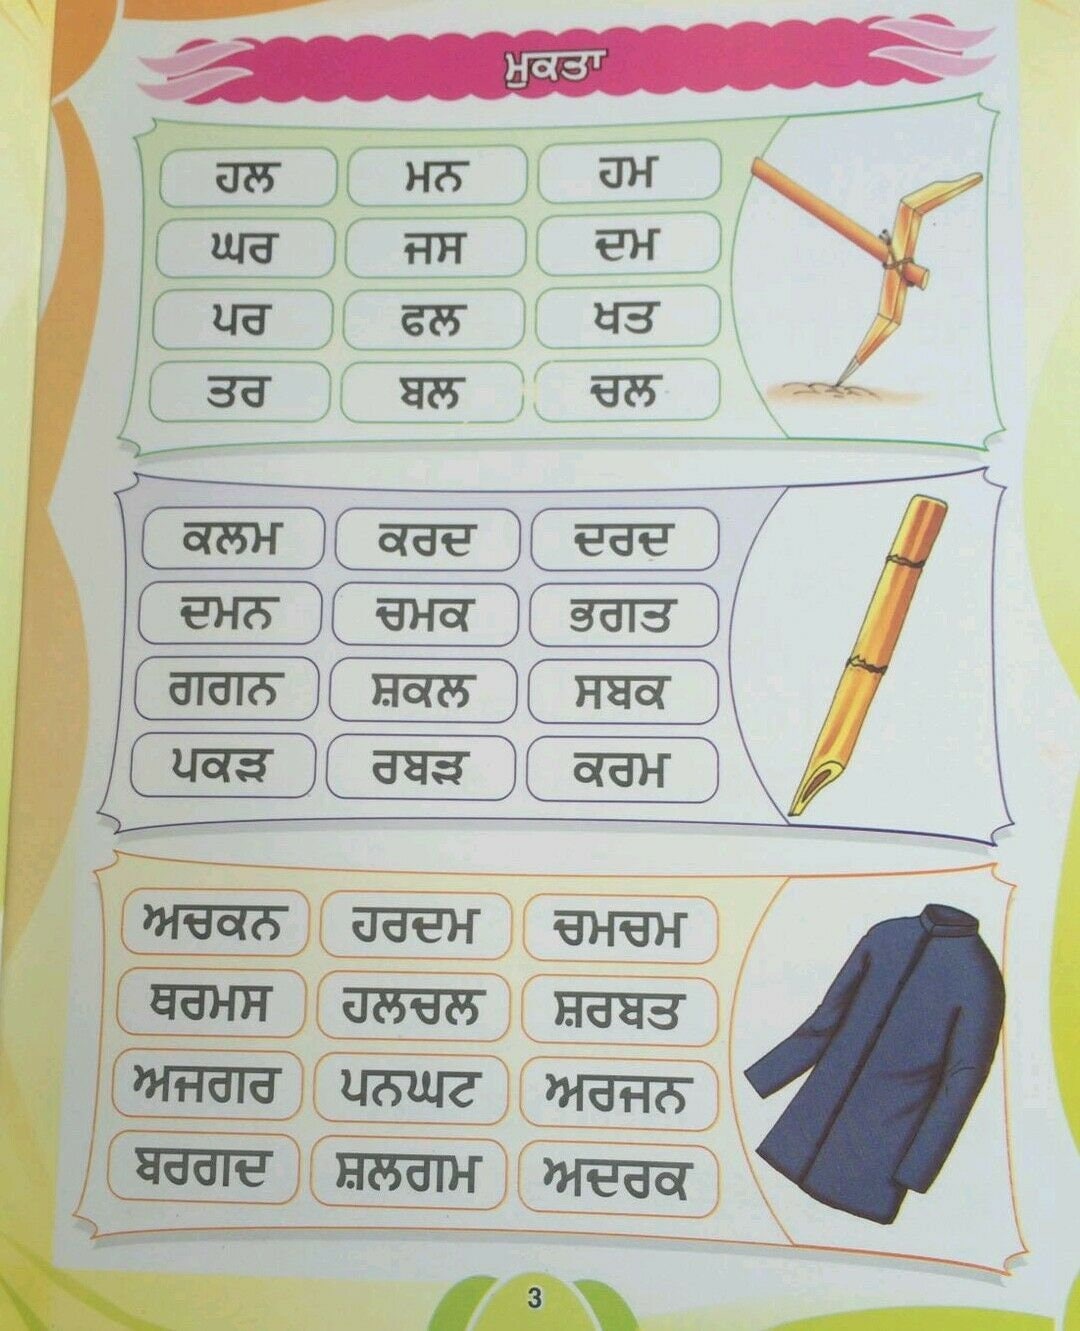 ਮੁਕਤਾ
ਹਲ ਮਨ ਹਮ
ਘਰ ਜਸ ਦਮ
ਪਰ ਫਲ ਖਤ
ਤਰ ਬਲ ਚਲ
ਕਲਮ ਕਰਦ ਦਰਦ
ਦਮਨ ਚਮਕ ਭਗਤ
ਗਗਨ ਸ਼ਕਲ ਸਬਕ
ਪਕੜ ਰਬੜ ਕਰਮ
ਅਚਕਨ ਹਰਦਮ ਚਮਚਮ
ਥਰਮਸ ਹਲਚਲ ਸ਼ਰਬਤ
ਅਜਗਰ ਪਨਘਟ ਅਰਜਨ
ਬਰਗਦ ਸ਼ਲਗਮ ਅਦਰਕ
3